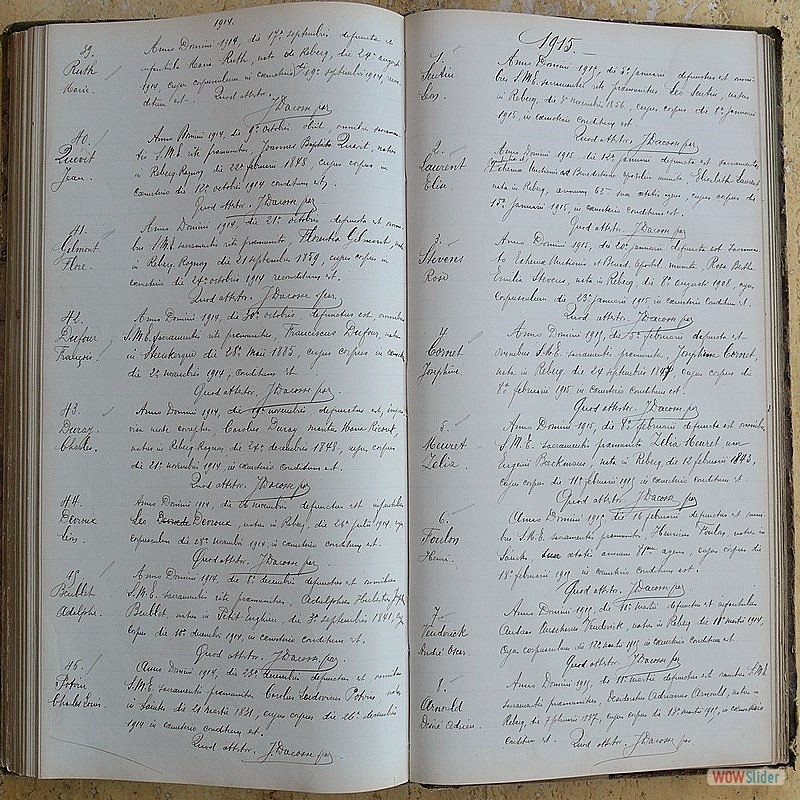 1914.
39.
Ruth
Marie.
Anno Domini 1914, die 17ª septembris defuncta est
infantula Maria Ruth, nata de Rebecq, die 24ª augusti
1914, cujus corpusculum in cœmeterio die 19ª septembris 1914, recon-
ditum est. Quod attestor. J Dacosse par
40.
Quevit
Jean.
Anno Domini 1914, die 9ª octobris obiit, omnibus sacramen-
tis S.M.E. rite præmunitus, Joannes Baptista Quevit, natus
in Rebecq-Rognon, die 22ª februarii 1843, cujus corpus in
cœmeterio die 12ª octobris 1914 conditum est.
Quod attestor. J Dacosse par
41.
Gilmont
Flore.
Anno Domini 1914, die 21ª octobris defuncta est omni-
bus S.M.E. sacramentis rite præmunita, Florentia Gilmont, nata
in Rebecq-Rognon, die 21 septembris 1859, cujus corpus in
cœmeterio die 24ª octobris 1914 reconditum est.
Quod attestor. J Dacosse par
42.
Dufour
François.
Anno Domini 1914, die 30ª octobris, defunctus est, omnibus
S.M.E. sacramentis rite præmunitus, Franciscus Dufour, natus
in Steenkerque die 28ª Maii 1885, cujus corpus in cœmeterio
die 2ª novembris 1914, conditum est.
Quod attestor. J Dacosse par
43.
Duray
Charles.
Anno Domini 1914, die 19ª novembris defunctus est, impro-
visa morte correptus, Carolus Duray maritus Maria
natus in Rebecq-Rognon, die 24ª decembris 1848, cujus corpus
die 21ª novembris 1914, in cœmeterio conditum est.
Quod attestor. J Dacosse par
44.
Devroux
Léon.
Anno Domini 1914, die 26 novembris defunctus est infantulus
Leo Devroux, natus in Rebecq, die 28ª julii 1914, cujus
corpusculum die 28ª novembris 1914 in cœmeterio conditum est.
Quod attestor. J Dacosse par
45.
Beullet
Adolphe.
Anno Domini 1914, die 8ª decembris defunctus est omnibus
S.M.E. sacramentis rite præmunitus, Adelphus Hubertus Joseph
Beullet, natus in Petit-Enghien, die 3ª septembris 1841, cujus
corpus die 10ª decembris 1914, in cœmeterio conditum est.
Quod attestor. J Dacosse par.
46.
Potvin
Charles Louis.
Anno Domini 1914, die 23ª decembris defunctus est omnibus
S.M.E. sacramentis præmunitus Carolus Ludovicus Potvin, natus
in Saintes die 21 martii 1831, cujus corpus die 26ª decembris
1914 in cœmeterio conditum est.
Quod attestor. J. Dacosse par
1915.
1.
Léon.
Anno Domini 1915, die 5ª januarii defunctus est omni-
bus S.M.E. sacramentis rite præmunitus Leo natus
in Rebecq, die 3ª novembris 1856, cujus corpus die 8ª januarii
1915, in cœmeterio conditum est.
Quod attestor. J Dacosse par
2.
Laurent
Elise.
Anno Domini 1915, die 12ª januarii defuncta est sacramentis
Extremæ Unctionis ac Benedictione apostolica munita, Elisabeth Laurent
nata in Rebecq, annum 62um suæ ætatis agens, cujus corpus die
15ª januarii 1915, in cœmeterio conditum est.
Quod attestor. J Dacosse par
3.
Stevens
Rose
Anno Domini 1915, die 20ª januarii defuncta est sacramen-
to Extremæ Unctionis et Bened. Apostol. munita, Rosa Bertha
Emilia Stevens, nata in Rebecq, die 8ª augusti 1908, cujus
corpusculum die 23ª januarii 1915 in cœmeterio conditum est.
Quod attestor J Dacosse par
4
Cornet
Joséphine.
Anno Domini 1915, die 5ª februarii defuncta est
omnibus S.M.E. sacramentis præmunita, Josephina Cornet,
nata in Rebecq die 24 septembris 1847 cujus corpus die
8ª februarii 1915 in cœmeterio conditum est.
Quod attestor J Dacosse par
5.
Heuret
Zélia.
Anno Domini 1915, die 8ª februarii defuncta est omnibus
S.M.E. sacramentis præmunita Zelia Heuret uxor
Eugenii Backmans, nata in Rebecq die 12 februarii 1843,
cujus corpus die 11ª februarii 1915 in cœmeterio conditum est.
Quod attestor. J Dacosse par
6.
Foulon
Henri.
Anno Domini 1915 die 16 februarii defunctus est omni-
bus S.M.E. sacramentis præmunitus, Henricus Foulon, natus in
Saintes suæ ætatis annum agens, cujus corpus die
18ª februarii 1915 in cœmeterio conditum est.
Quod attestor. J Dacosse par
7.
Venderick
André Oscar.
Anno Domini 1915, die 10ª martii defunctus est infantulus
Andreas Venderick, natus in Rebecq die 10ª martii 1914,
cujus corpusculum die 12ª martii 1915 in cœmeterio conditum est
Quod attestor J Dacosse par
8.
Arnould
Désiré Adrien.
Anno Domini 1915, die 15ª martii defunctus est omnibus S.M.E.
sacramentis præmunitus, Desideratus Adrianus Arnould, natus in
Rebecq, die septembris 1857, cujus corpus die 18ª martii 1915, in cœmeterio
conditum est. Quod attestor. J Dacosse par.
WOWSlider